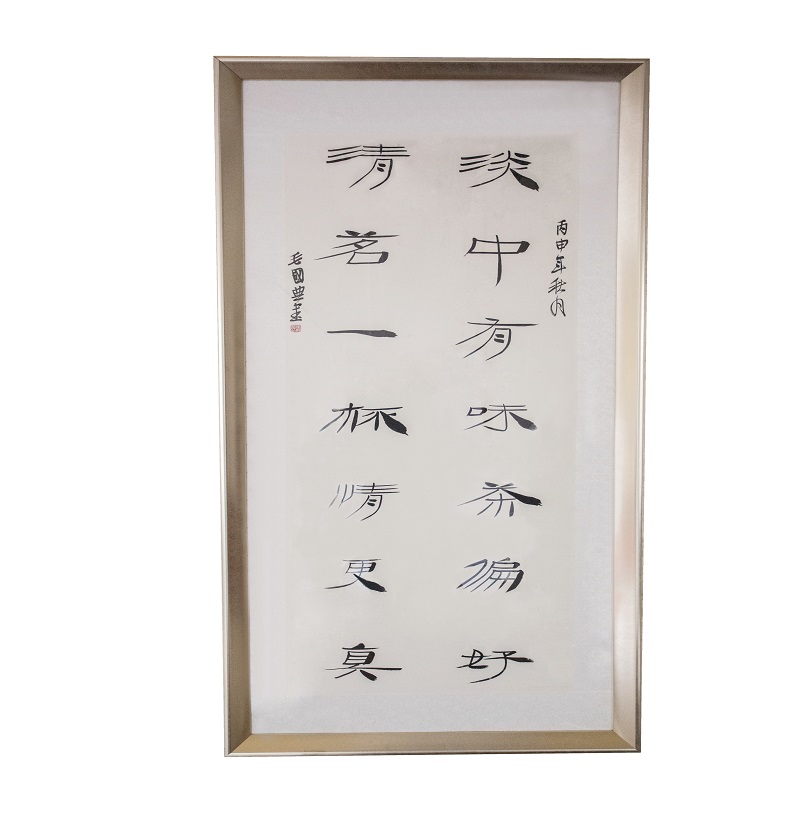 丙申年秋月
淡中有味茶偏好
清茗一杯情更真
毛國典書